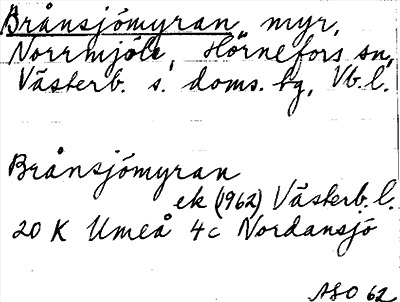 Brånsjömyran myr,
Norrmjöle, Hörnefors sn,
Västerb. s. doms. tg, Vb. l.
Brånsjömyran
ek (1962) Västerb. l.
20 K Umeå 4c Nordansjö
ASO 62